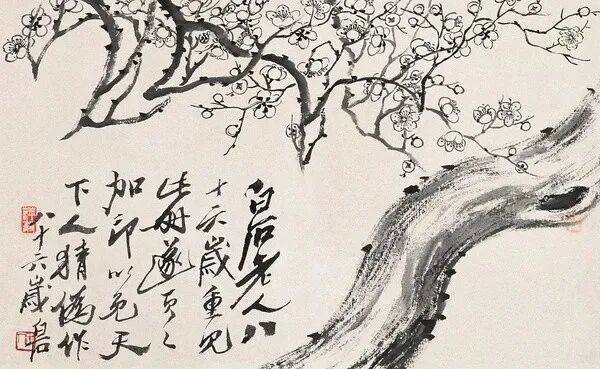 白石老人八
十六歲重見
此冊遂頁々
加印以免天
下人猜偽作
八十六歲白石